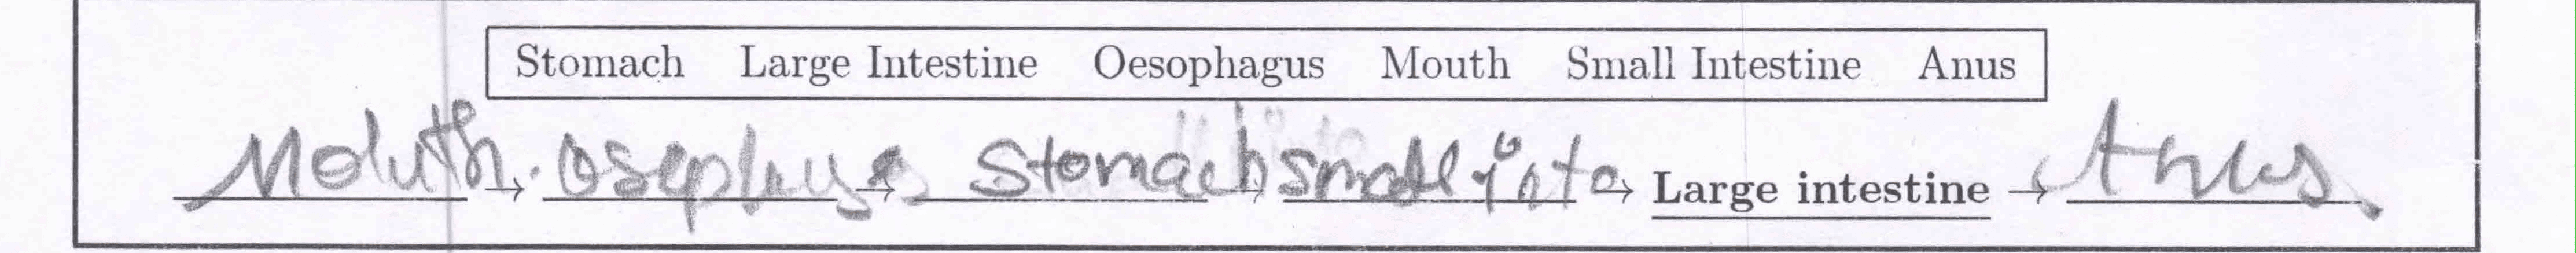 Stomach Large Intestine Oesophagus Mouth Small Intestine Anus
Moluth → Osephugs → Stomach → Small inte → Large intestine → Anus